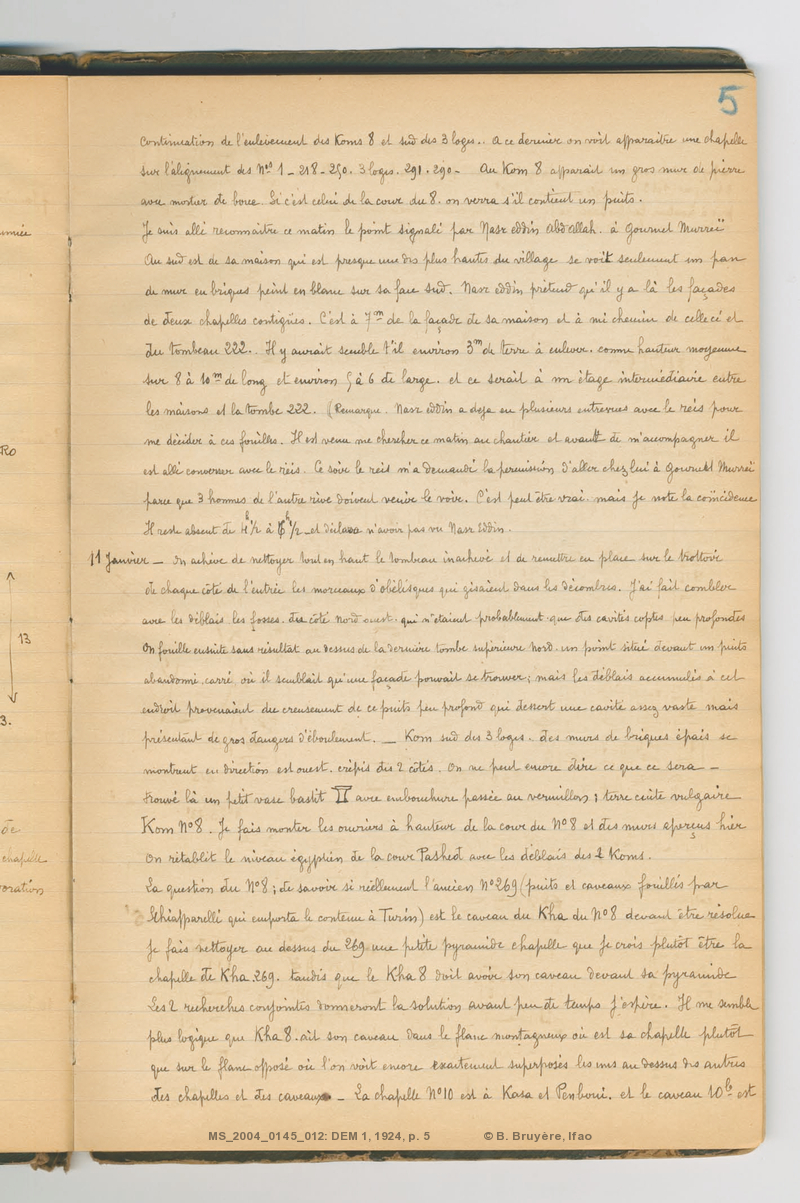 5
continuation de l'enlèvement des Koms 8 et sud des 3 loges.. A ce dernier on voit apparaitre une chapelle
sur l'alignement des Nos 1 - 218 - 250. 3 loges. 291. 290 - Au Kom 8 apparait un gros mur de pierre
avec mortier de boue. Si c'est celui de la cour du 8. on verra s'il contient un puits.
Je suis allé reconnaitre ce matin le point signalé par Nasr eddin Abdallah. à Gournet Murreï
Au sud est de sa maison qui est presque une des plus hautes du village se voit seulement un pan
de mur en briques peint en blanc sur sa face sud. Nasr eddin prétend qu'il y a là les façades
de deux chapelles contigües. C'est à 7m de la façade de sa maison et à mi chemin de celle ci et
du tombeau 222.. Il y aurait semble t'il environ 3m de terre à enlever. comme hauteur moyenne
sur 8 à 10m de long et environ 5 à 6 de large. et ce serait à un étage intermédiaire entre
les maisons et la tombe 222. (Remarque. Nasr eddin a déja eu plusieurs entrevues avec le reis pour
me décider à ces fouilles. Il est venu me chercher ce matin au chantier et avant de m'accompagner il
est allé converser avec le réis. Ce soir le reis m'a demandé la permission d'aller chez lui à Gournet Murreï
parce que 3 hommes de l'autre rive doivent venir le voir. C'est peut être vrai. mais je note la coïncidence
Il reste absent de 4h 1/2 à 6h 1/2 et déclare n'avoir pas vu Nasr Eddin.
11 Janvier - On achève de nettoyer tout en haut le tombeau inachevé et de remettre en place sur le trottoir
de chaque côté de l'entrée les morceaux d'obélisques qui gisaient dans les décombres. J'ai fait combler
avec les déblais les fosses du côté nord ouest. qui n'étaient probablement que des cavités coptes peu profondes
On fouille ensuite sans résultat au dessus de la dernière tombe supérieure Nord. un point situé devant un puits
abandonné. carré où il semblait qu'une façade pouvait se trouver; mais les déblais accumulés à cet
endroit provenaient du creusement de ce puits peu profond qui dessert une cavité assez vaste mais
présentant de gros dangers d'éboulement. - Kom sud des 3 loges. des murs de briques épais se
montrent en direction est ouest. crépis des 2 côtés. On ne peut encore dire ce que ce sera -
trouvé là un petit vase bastit avec embouchure passée au vermillon; terre cuite vulgaire
Kom N°8. Je fais monter les ouvriers à hauteur de la cour du N°8 et des murs aperçus hier
On rétablit le niveau égyptien de la cour Pashed avec les déblais des 2 Koms.
La question du N°8; de savoir si réellement l'ancien N°269 (puits et caveaux fouillés par
Schiapparelli qui emporta le contenu à Turin) est le caveau du Kha du N°8 devant être résolue
Je fais nettoyer au dessus du 269 une petite pyramide chapelle que je crois plutôt être la
chapelle de Kha 269. tandis que le Kha 8 doit avoir son caveau devant sa pyramide
Les 2 recherches conjointes donneront la solution avant peu de temps j'espère. Il me semble
plus logique que Kha 8. ait son caveau dans le flanc montagneux où est sa chapelle plutôt
que sur le flanc opposé où l'on voit encore exactement superposés les uns au dessus des autres
des chapelles et des caveaux. - La chapelle N°10 est à Kasa et Penboui. et le caveau 10b est
année
RO
13
3.
de
chapelle
oration
MS_2004_0145_012: DEM 1, 1924, p. 5 © B. Bruyère, Ifao